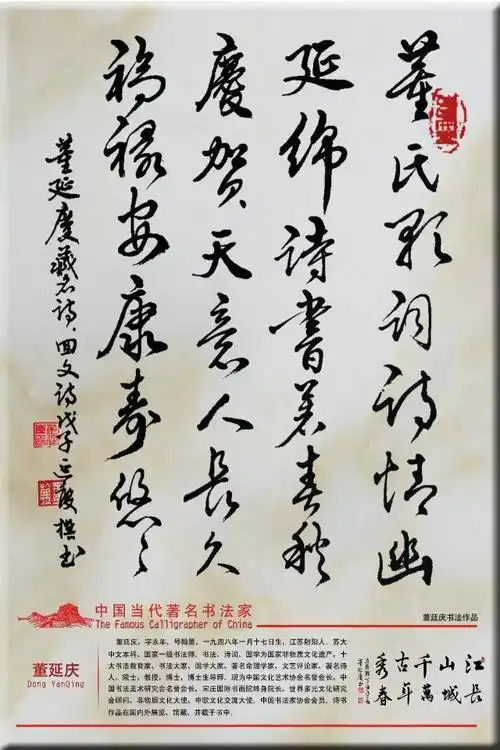 董氏歌词诗情幽
延绵诗書著春秋
慶賀天意人長久
福禄安康壽悠々
董延慶藏名诗，回文诗戊子延陵撰书
中国当代著名书法家
The Famous Calligrapher of China
董延庆书法作品
董延庆
Dong YanQing
董延庆，字永年，号翰墨，一九四八年一月十七日生，江苏射阳人，苏大
中文本科，国家一级书法师，书法、诗词、国学为国家非物质文化遗产，十
大书法教育家，书法大家，国学大家，著名命理学家，文艺评论家，著名诗
人，院士，教授，博士，博士生导师，现为中国文化艺术协会名誉会长，中
国书法美术研究会名誉会长，宋庄国际书画院终身院长，世界多元文化研究
会顾问，非物质文化大使，中欧文化交流大使，中国书法家协会会员，诗书
作品在国内外展览、馆藏，并载于书中.
江長
山城
千萬
古年
秀春